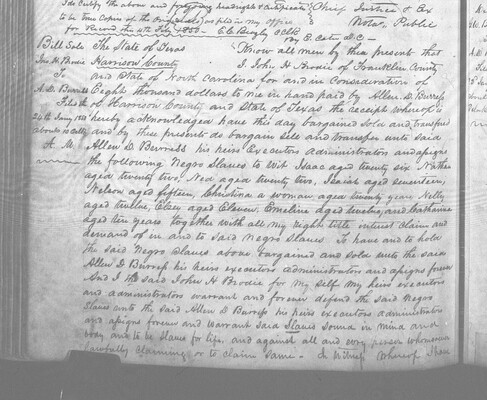 I do certify the above and foregoing headright & Certificate Chief Justice & Ex
to be true Copies of the original as filed in my office Notary Public
for Record this 4th July 1850
Bill Sale The State of Texas Know all men by this present that
Jno. H. Brodie Harrison County I, John H Brodie of Franklin County
To and State of North Carolina for and in Consideration of
A. D. Burress Eight thousand dollars to me in hand paid by Allen D. Burress
Filed of Harrison County and State of Texas the receipt whereof is
24th hereby acknowledged have this day bargained Sold and transfered
about 10 Oclk and by these presents do bargain Sell and transfer unto said
A. M. Allen D. Burress his heirs Executors administrators and assigns
the following Negro Slaves to Wit Isaac aged twenty six Nathan
aged twenty two, Ned aged twenty two, Isaiah aged seventeen,
Nelson aged fifteen, Christina a woman aged twenty year Nelly
aged twelve, Eliza aged Eleven, Emeline aged twelve, and Catharine
aged ten years together with all my right title interest claim and
demand of in and to said Negro Slaves To have and to hold
the said Negro Slaves above bargained and sold unto the said
Allen D Burress his heirs executors administrators and assigns forever
And I the said John H Brodie for my self my heirs executors
and administrators warrant and forever defend the said Negro
Slaves unto the said Allen D Burress his heirs executors administrators
and assigns forever and warrant said Slaves sound in mind and
body and to be slaves for life, and against all and every person whomsoever
lawfully claiming or to claim same. In Witness Whereof I have